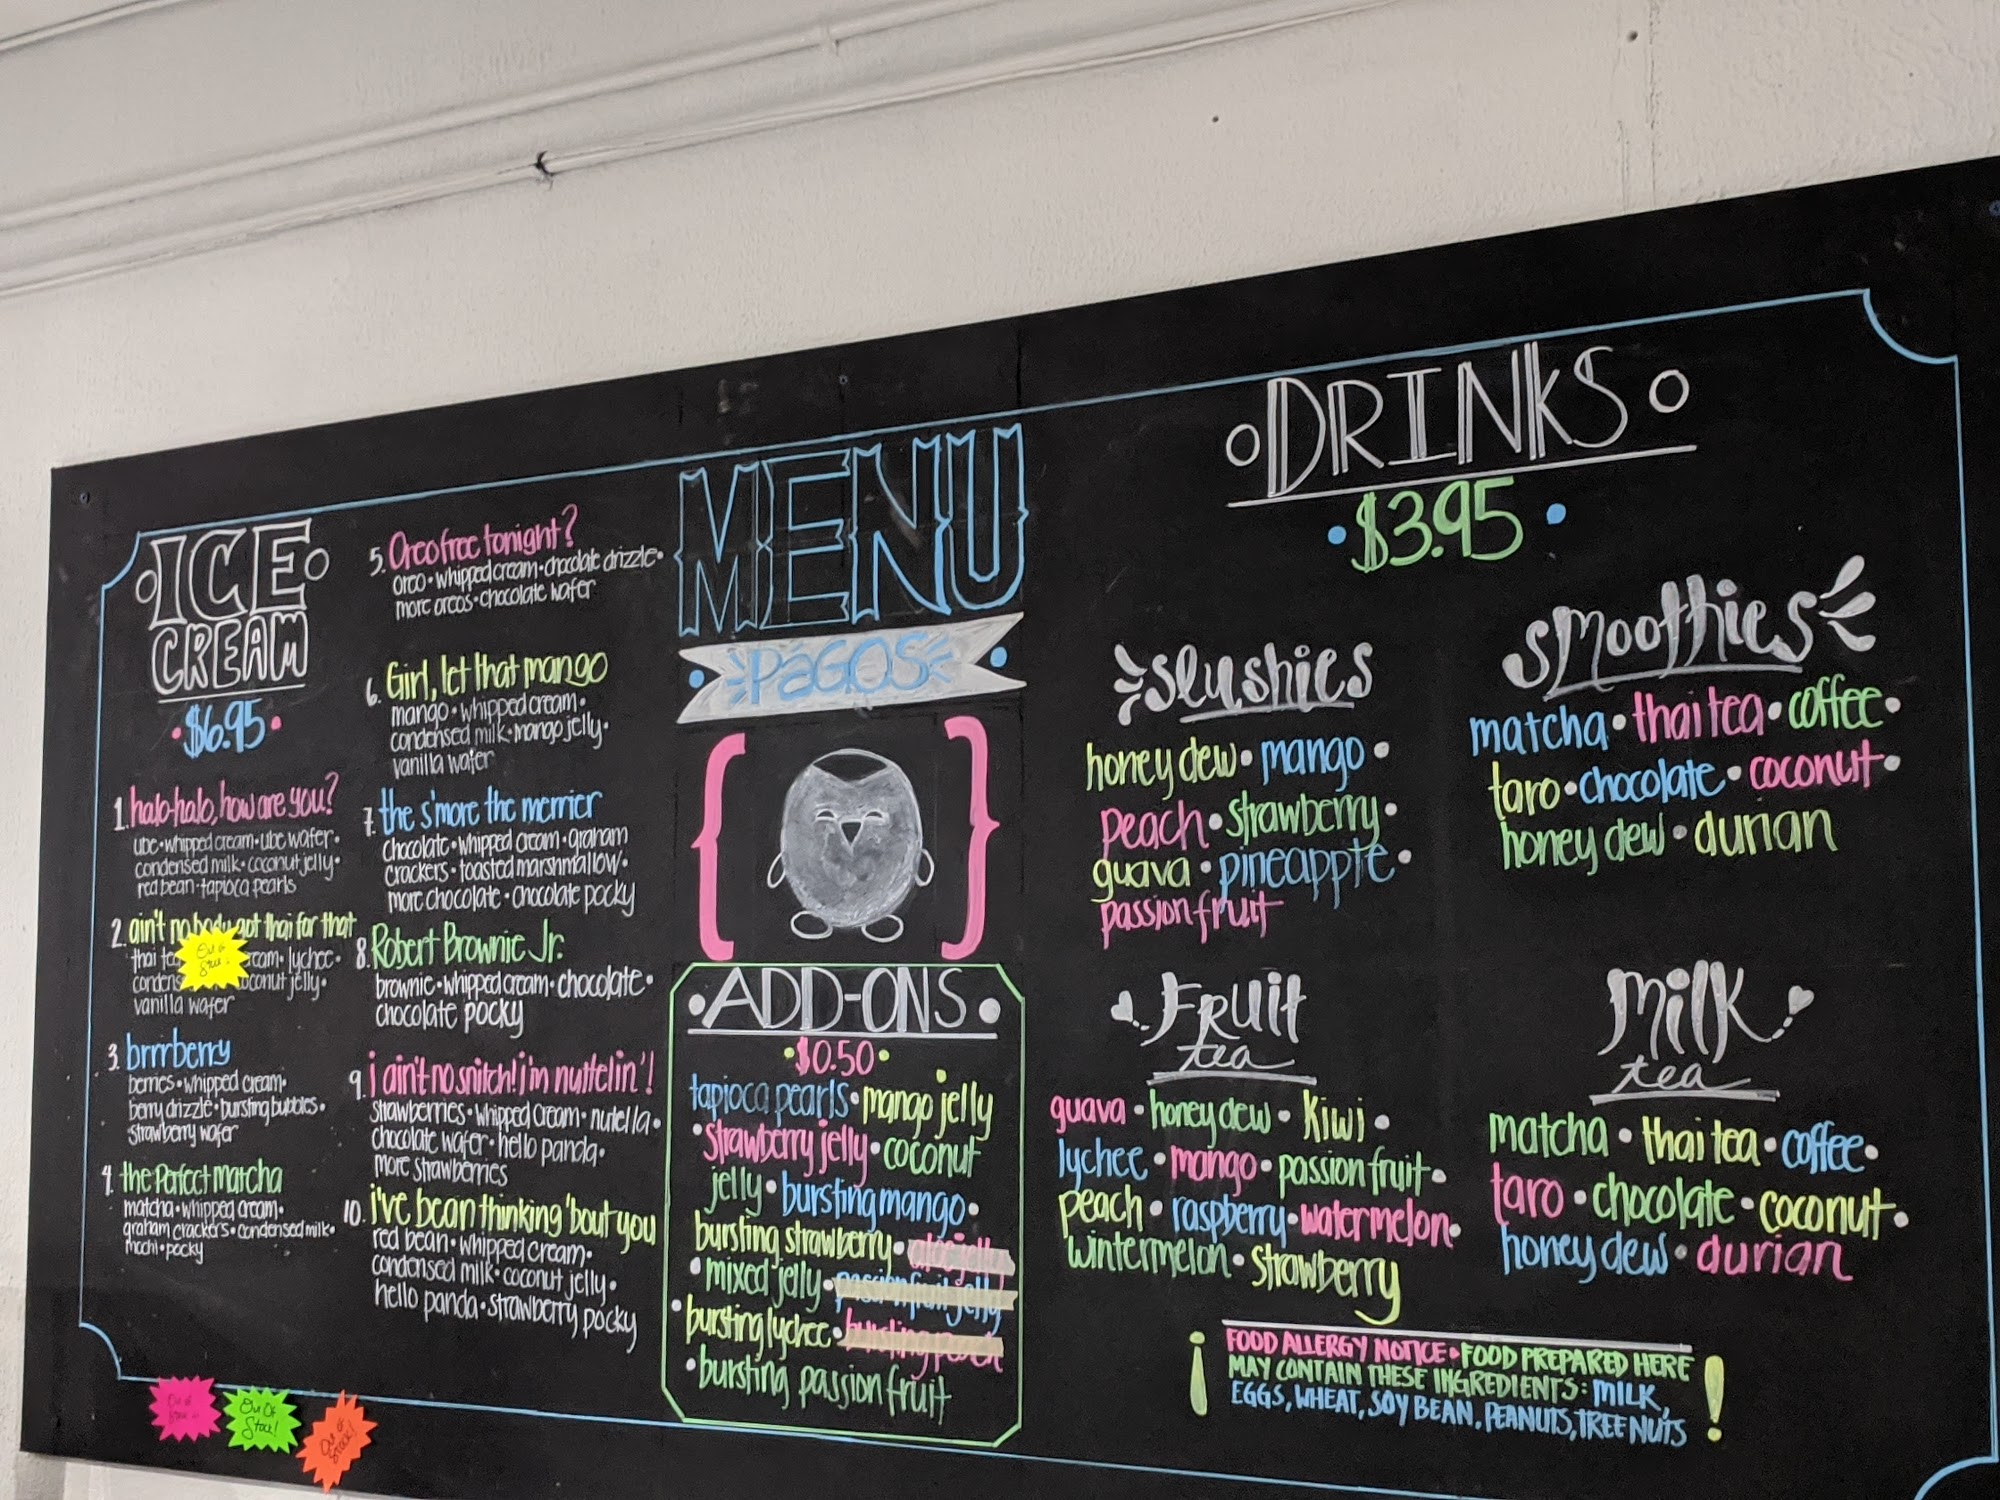 ICE
CREAM
$6.95
1. halo-halo, how are you?
ube • whipped cream • ube wafer •
condensed milk • coconut jelly •
red bean • tapioca pearls
2. ain't nobody got thai for that
thai tea cream • lychee •
coconut jelly •
vanilla wafer
Out of
3. brrrberry
berries • whipped cream •
berry drizzle • bursting bubbles •
strawberry wafer
4. the perfect matcha
matcha • whipped cream •
graham crackers • condensed milk •
mochi • pocky
5. Oreo free tonight?
oreo • whipped cream • chocolate drizzle •
more oreos • chocolate wafer
6. Girl, let that mango
mango • whipped cream •
condensed milk • mango jelly •
vanilla wafer
7. the s'more the merrier
chocolate • whipped cream • graham
crackers • toasted marshmallow •
more chocolate • chocolate pocky
8. Robert Brownie Jr.
brownie • whipped cream • chocolate •
chocolate pocky
9. i ain't no snitch! i'm nuttelin'!
strawberries • whipped cream • nutella •
chocolate wafer • hello panda •
more strawberries
10. i've bean thinking 'bout you
red bean • whipped cream •
condensed milk • coconut jelly •
hello panda • strawberry pocky
Out of
Stock!
Out of
Stock!
MENU
PAGOS
ADD-ONS
$0.50
tapioca pearls • mango jelly
• strawberry jelly • coconut
jelly • bursting mango •
bursting strawberry • aloe jelly
• mixed jelly • passion fruit jelly
• bursting lychee • bursting peach
• bursting passion fruit
DRINKS
$3.95
slushies
honey dew • mango •
peach • strawberry •
guava • pineapple •
passion fruit
smoothies
matcha • thai tea • coffee •
taro • chocolate • coconut •
honey dew • durian
Fruit
tea
guava • honey dew • kiwi •
lychee • mango • passion fruit •
peach • raspberry • watermelon •
wintermelon • strawberry
Milk
tea
matcha • thai tea • coffee •
taro • chocolate • coconut •
honey dew • durian
FOOD ALLERGY NOTICE • FOOD PREPARED HERE
MAY CONTAIN THESE INGREDIENTS: MILK,
EGGS, WHEAT, SOY BEAN, PEANUTS, TREE NUTS